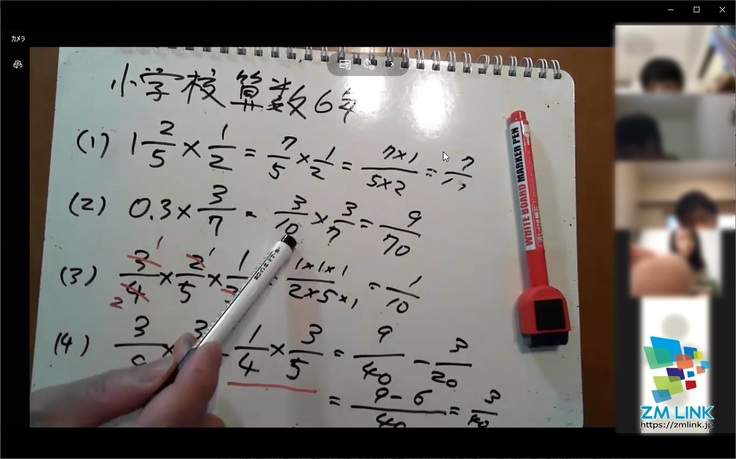 カメラ
小学校算数6年
(1) 1 2/5 × 1/2 = 7/5 × 1/2 = 7×1/5×2 = 7/10
(2) 0.3 × 3/7 = 3/10 × 3/7 = 9/70
(3) 3/4 × 2/5 × 1/ = 1×1×1/2×5×1 = 1/10
(4) 3/ × 3 - 1/4 × 3/5 = 9/40 - 3/20
= 9-6/40 = 3/40
WHITE BOARD MARKER PEN
ZM LINK
https://zmlink.jp